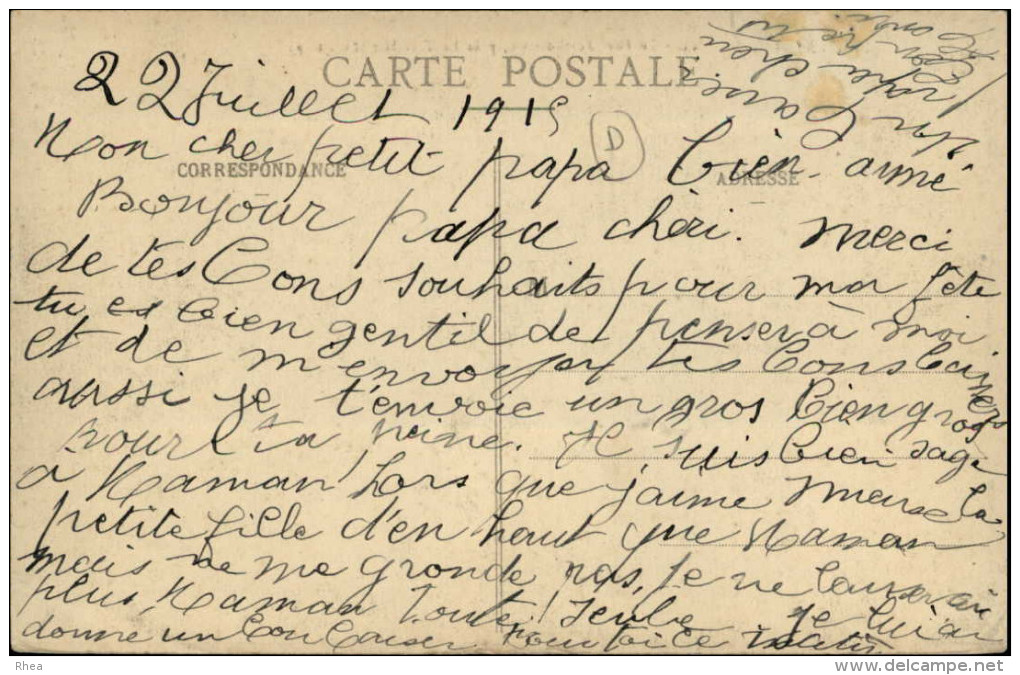 CARTE POSTALE
22 Juillet 1915
D
CORRESPONDANCE
ADRESSE
Mon cher petit papa bien aimé
Bonjour papa chéri. Merci
de tes bons souhaits pour ma fête
tu es bien gentil de penser à moi
et de m'envoyer tes bons baisers
aussi je t'envoie un gros bien gros
pour ta peine. Je suis bien sage
à Maman hors que j'aime mieux la
petite fille d'en haut que Maman
mais ne me gronde pas, je ne
plus Maman toute seule je lui ai
donné un bon baiser pour toi ce matin
Rhea
www.delcampe.net